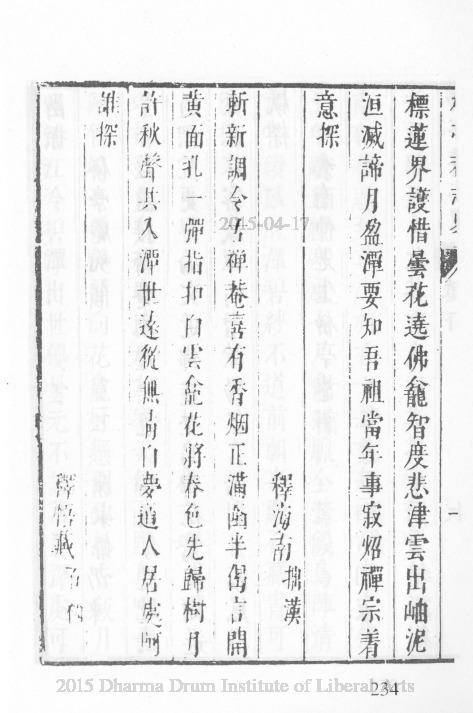 標蓮界護惜曇花遶佛龕智度悲津雲出岫泥
洹滅諦月盈潭要知吾祖當年事寂炤禪宗着
意探
釋海南拙漢
斬新調令舌禪菴喜有香烟正滿函半偈言開
黃面孔一彈指扣白雲龕花將春色先歸樹月
許秋聲共入潭世遠從無前白麥道人居處阿
誰探
釋悟
2015-04-17
234
2015 Dharma Drum Institute of Liberal Arts